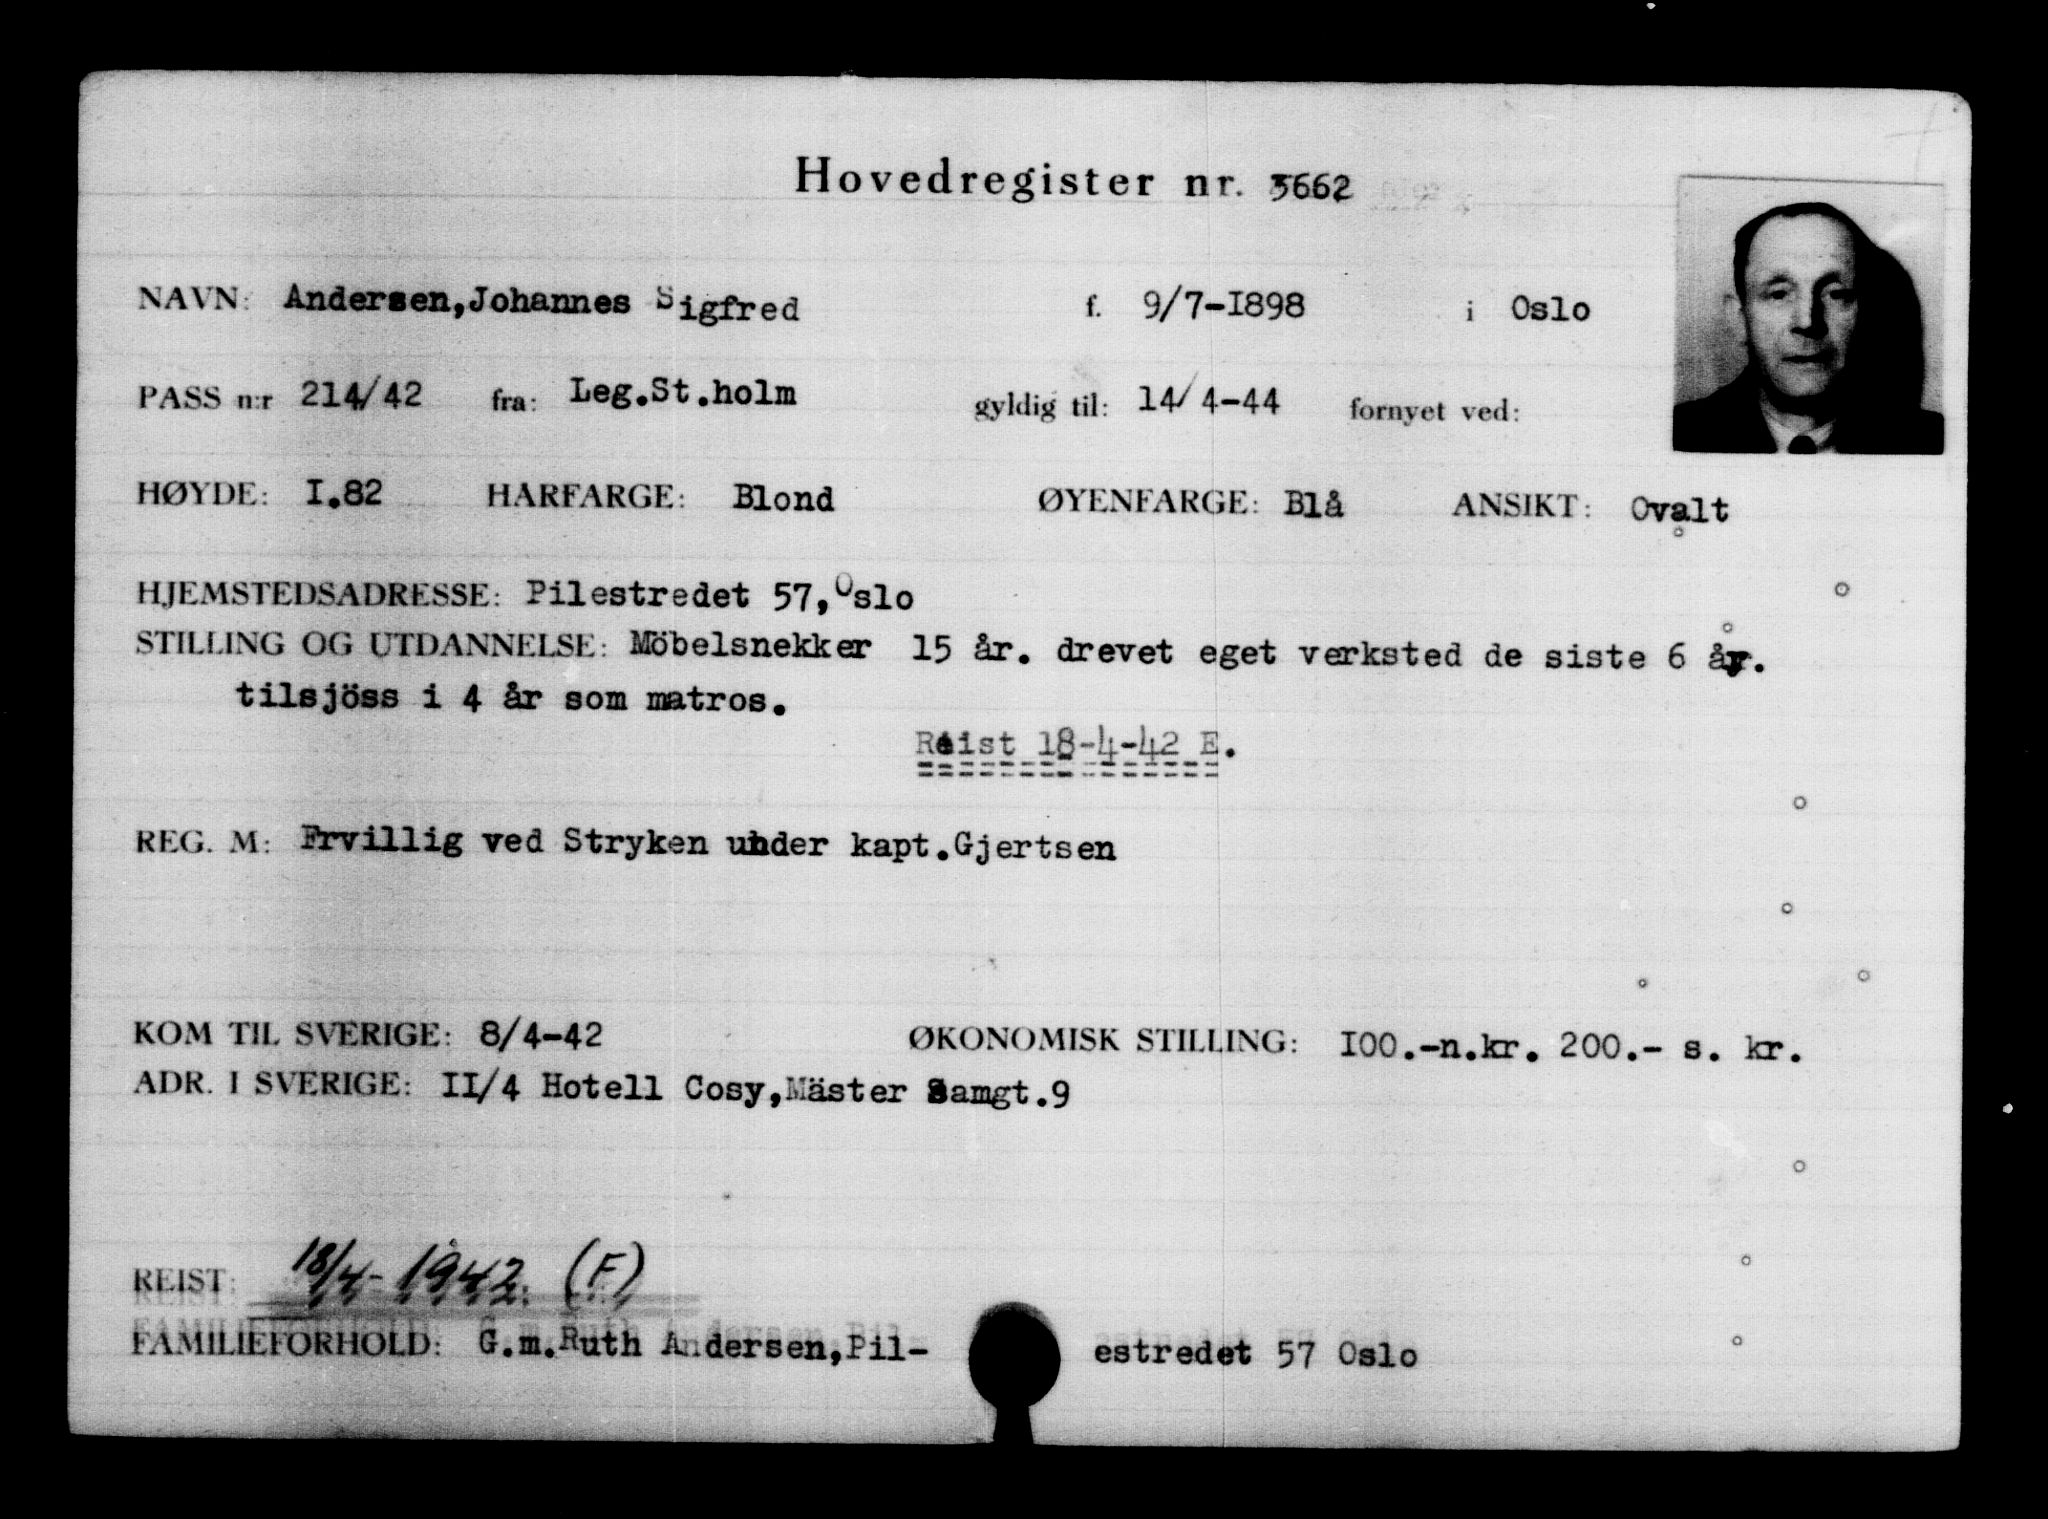 Hovedregister nr. 3662
NAVN: Andersen,Johannes Sigfred f. 9/7-I898 i Oslo
PASS n:r 214/42 fra: Leg.St.holm gyldig til: 14/4-44 fornyet ved:
HØYDE: I.82 HARFARGE: Blond ØYENFARGE: Blå ANSIKT: Ovalt
HJEMSTEDSADRESSE: Pilestredet 57,Oslo
STILLING OG UTDANNELSE: Möbelsnekker 15 år. drevet eget verksted de siste 6 år.
tilsjöss i 4 år som matros.
Reist 18-4-42 E.
REG. M: Frvillig ved Stryken under kapt.Gjertsen
KOM TIL SVERIGE: 8/4-42 ØKONOMISK STILLING: I00.-n.kr. 200.- s. kr.
ADR. I SVERIGE: II/4 Hotell Cosy,Mäster Samgt.9
REIST: 18/4-1942. (F.)
FAMILIEFORHOLD: G.m.Ruth Andersen,Pil- estredet 57 Oslo